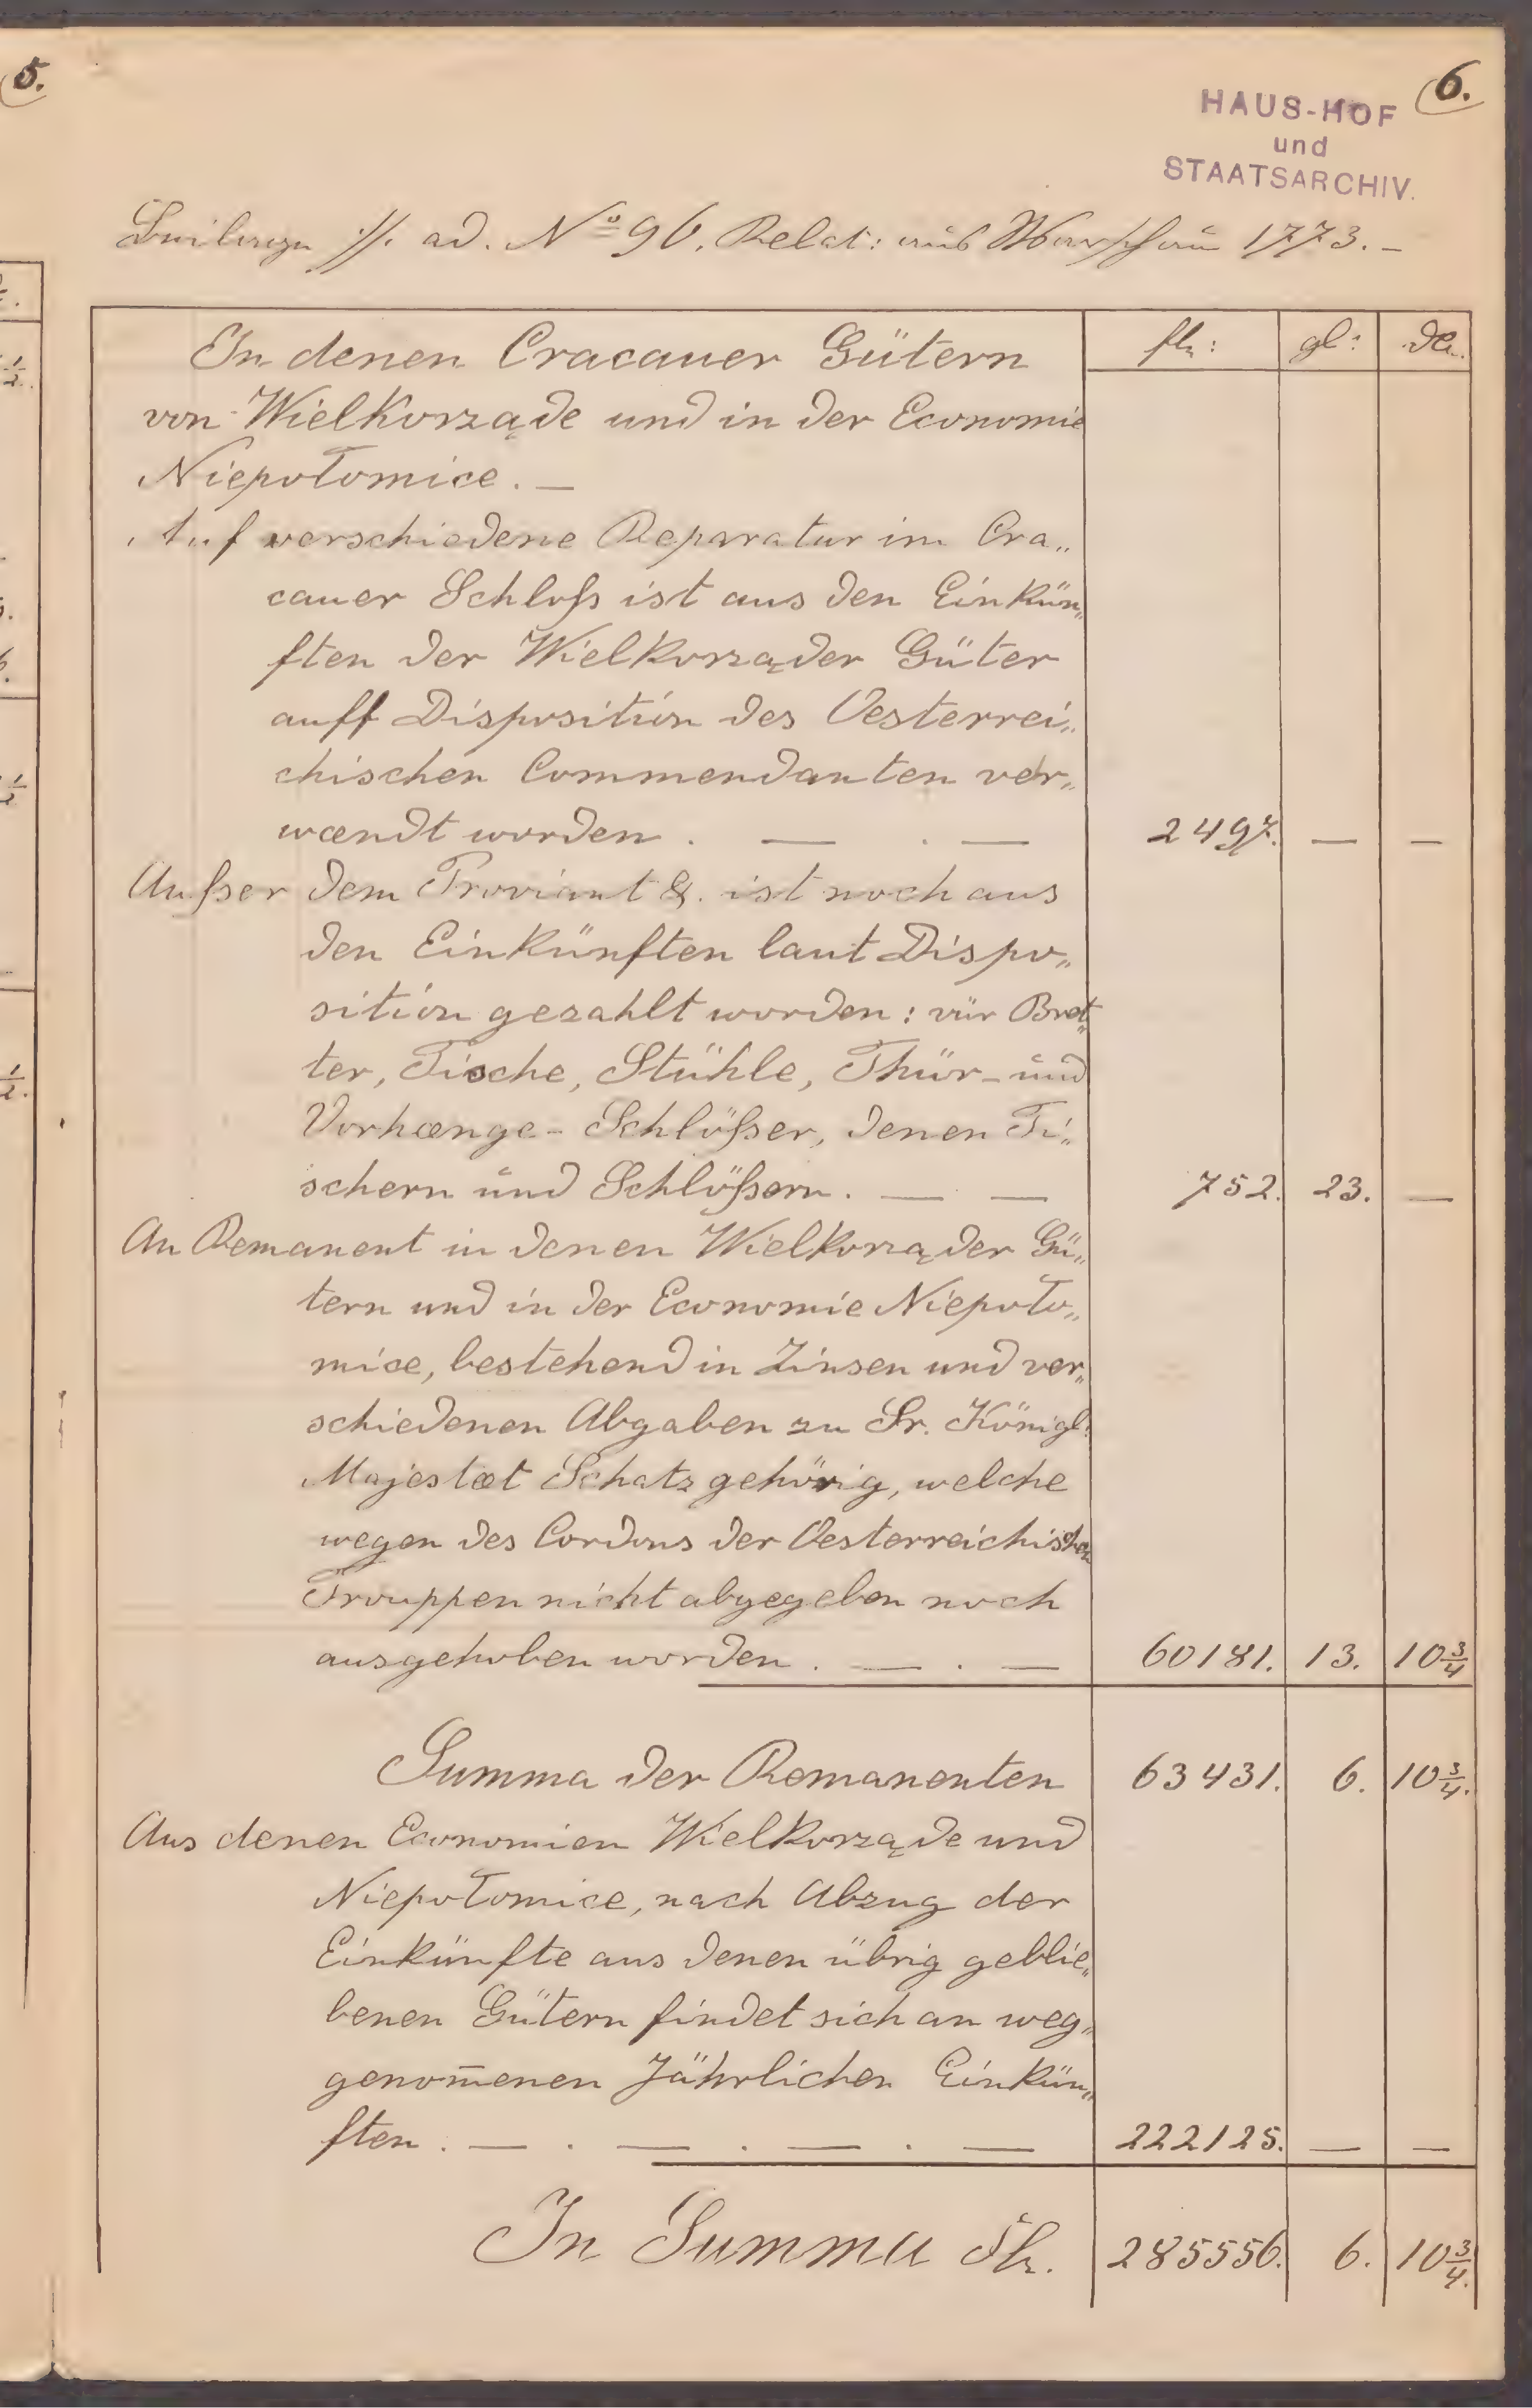 5.
6.
HAUS-HOF
und
STAATSARCHIV.
Beilage //. ad. No 96. Relat: aus Warschau 1773. –
In denen Cracauer Gütern
von Wielkorząde und in der Economie
Niepołomice. —
fl: gl: de.
Auf verschiedene Reparatur im Cra„
cauer Schloß ist aus den Einkün„
ften der Wielkorząder Güter
auff Disposition des Oesterrei„
chischen Commendanten ver„
wændt worden . — . — 2497. — —
Außer dem Proviant &. ist noch aus
den Einkünften laut Dispo„
sition gezahlt worden: vür Bret„
ter, Tische, Stühle, Thür- und
Vorhænge- Schlößer, denen Ti„
schern und Schlößern. — — 752. 23. —
An Remanent in denen Wielkorząder Gü„
tern und in der Economie Niepoło„
mice, bestehend in Zinsen und ver„
schiedenen Abgaben zu Sr. Königl:
Majestæt Schatz gehörig, welche
wegen des Cordons der Oesterreichischen
Trouppen nicht abgegeben noch
ausgehoben worden . — . — 60181. 13. 10 3/4
Summa der Remanenten 63431. 6. 10 3/4.
Aus denen Economien Wielkorząde und
Niepołomice, nach Abzug der
Einkünfte aus denen übrig geblie„
benen Gütern findet sich an weg„
genom̄enen Jährlichen Einkün„
ften . — . — . — . — 222125. — —
In Summa fl. 285556. 6. 10 3/4.